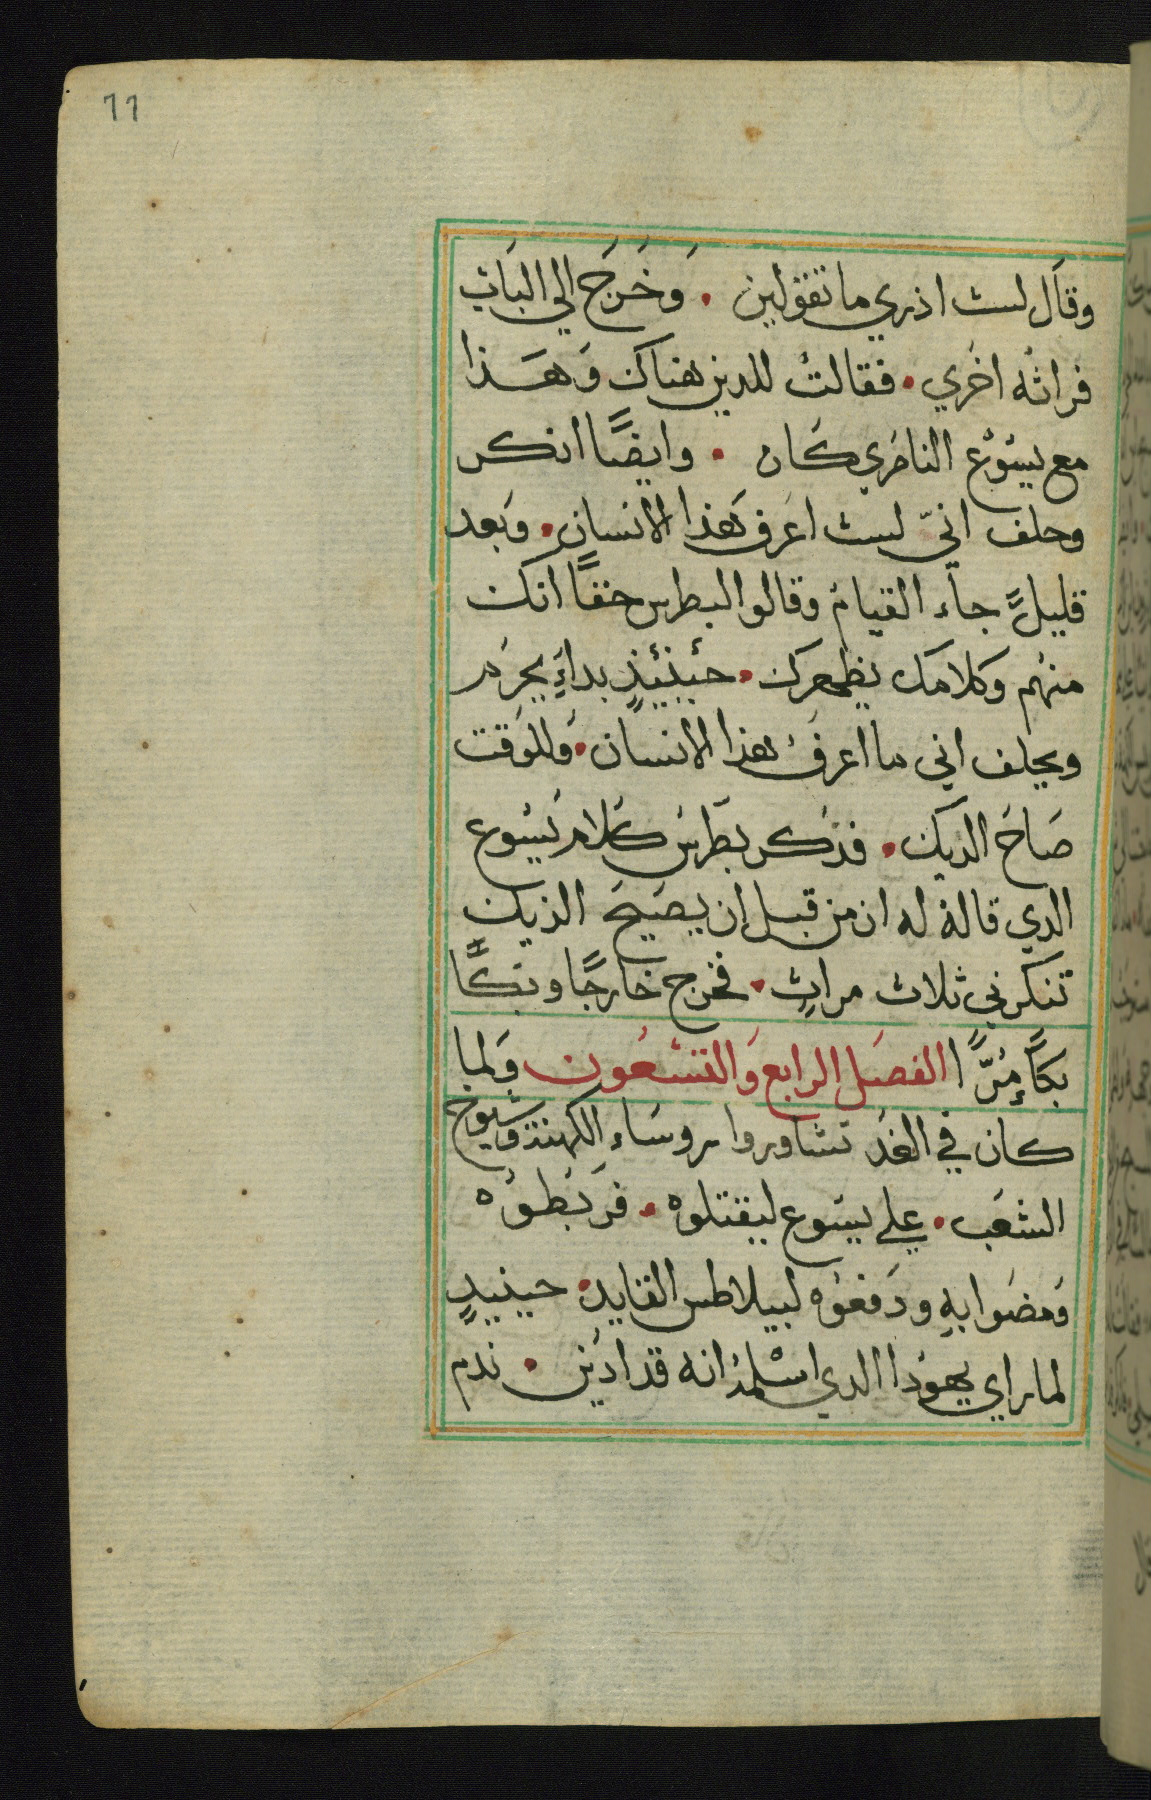 11
وقال لست ادري ما تقولين . وَخَرَج الي البَاب
فراته اخَري . فقالت للدين هناك وَهَذا
مع يسُوْع الناصَري كَان . وايضًا انكر
وحلف انيّ لست اعَرف هَذا الانسان . وَبَعد
قليلً جاء القيامُ وقالوا لبطرس حقاً انك
منهُم وكلامك يظهرك . حينيئذٍ بداءَ يحَرم
ويحلف اني ما اعرفُ هذا الانسان . وَللوَقت
صَاحَ الديك . فذكر بطرس كلام يَسُوع
الدي قالهُ له ان من قبل ان يصَيحَ الذيك
تنكرني ثلاث مراتٍ . فخرج خارجًا وبَكَّا
بكاًءِ مُرًّا الفصَل الرابع وَالتسْعُون وَلما
كان في الغَد تشاوروا روسَاءِ الكهنة وشيوخ
الشعَب . علي يسَوع ليقتلوه . فرَبَطوُه
وَمضَوا بهِ ودَفعوُه لبيلاطس القايد . حينيدٍ
لما راي يهوُدا الدي اسْلمهُ انه قد ادين . ندم